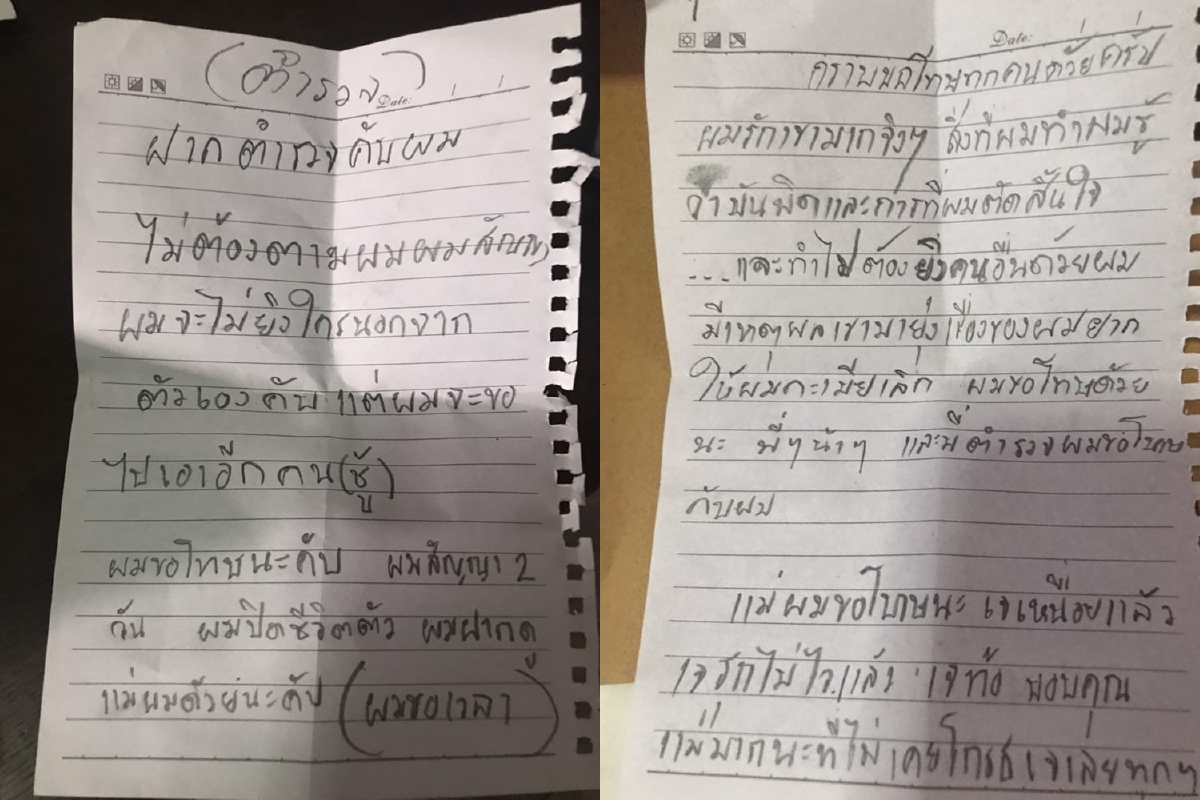 (ตำรวจ)
Date:
ฝากตำรวจคับผม
ไม่ต้องตามผมผมสัญญา
ผมจะไม่ยิงใครนอกจาก
ตัวเองคับ แต่ผมจะขอ
ไปเอาอีกคน(ชู้)
ผมขอโทษนะคับ ผมสัญญา 2
วัน ผมปิดชีวิตตัว ผมฝากดู
แม่ผมด้วยนะคับ (ผมขอเวลา)
Date:
กราบขอโทษทุกคนด้วยครับ
ผมรักเขามากจิงๆ สิ่งที่ผมทำผมรู้
ว่ามันผิดและการที่ผมตัดสินใจ
...และทำไมต้องยิงคนอื่นด้วยผม
มีเหตุผลเขามายุ่งเรื่องของผมอยาก
ให้ผมกะเมียเลิก ผมขอโทษด้วย
นะ พี่ๆน้าๆ และพี่ตำรวจผมขอโทษ
คับผม
แม่ผมขอโทษนะ เจเหนื่อยแล้ว
เจรักไม่ไหวแล้ว เจท้อ ขอบคุณ
แม่มากนะที่ไม่เคยโกรธเจเลยทุกๆ